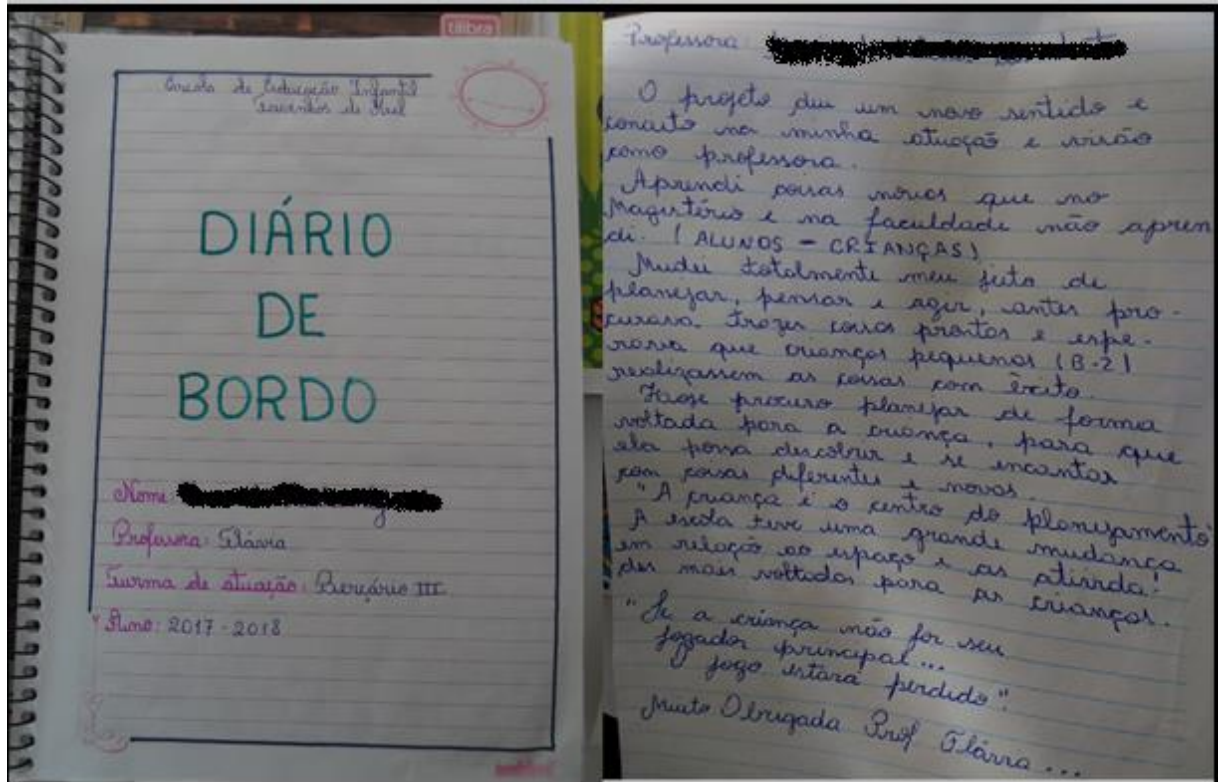 tilibra
Escola de Educação Infantil
de Mel
DIÁRIO
DE
BORDO
Nome
Professora: Flávia
Turma de atuação: Berçário III
Ano: 2017-2018
Professora:
O projeto deu um novo sentido e
conceito na minha atuação e visão
como professora.
Aprendi coisas novas que no
Magistério e na faculdade não apren
di. (ALUNOS - CRIANÇAS)
Mudei totalmente meu jeito de
planejar, pensar e agir, antes pro-
curava trazer coisas prontas e espe-
rava que crianças pequenas (B-2)
realizassem as coisas com êxito.
Hoje procuro planejar de forma
voltada para a criança, para que
ela possa descobrir e se encantar
com coisas diferentes e novas.
"A criança é o centro do planejamento"
A escola teve uma grande mudança
em relação ao espaço e as ativida-
des mais voltadas para as crianças.
"Se a criança não for seu
jogador principal...
O jogo estará perdido".
Muito Obrigada Prof Flávia...